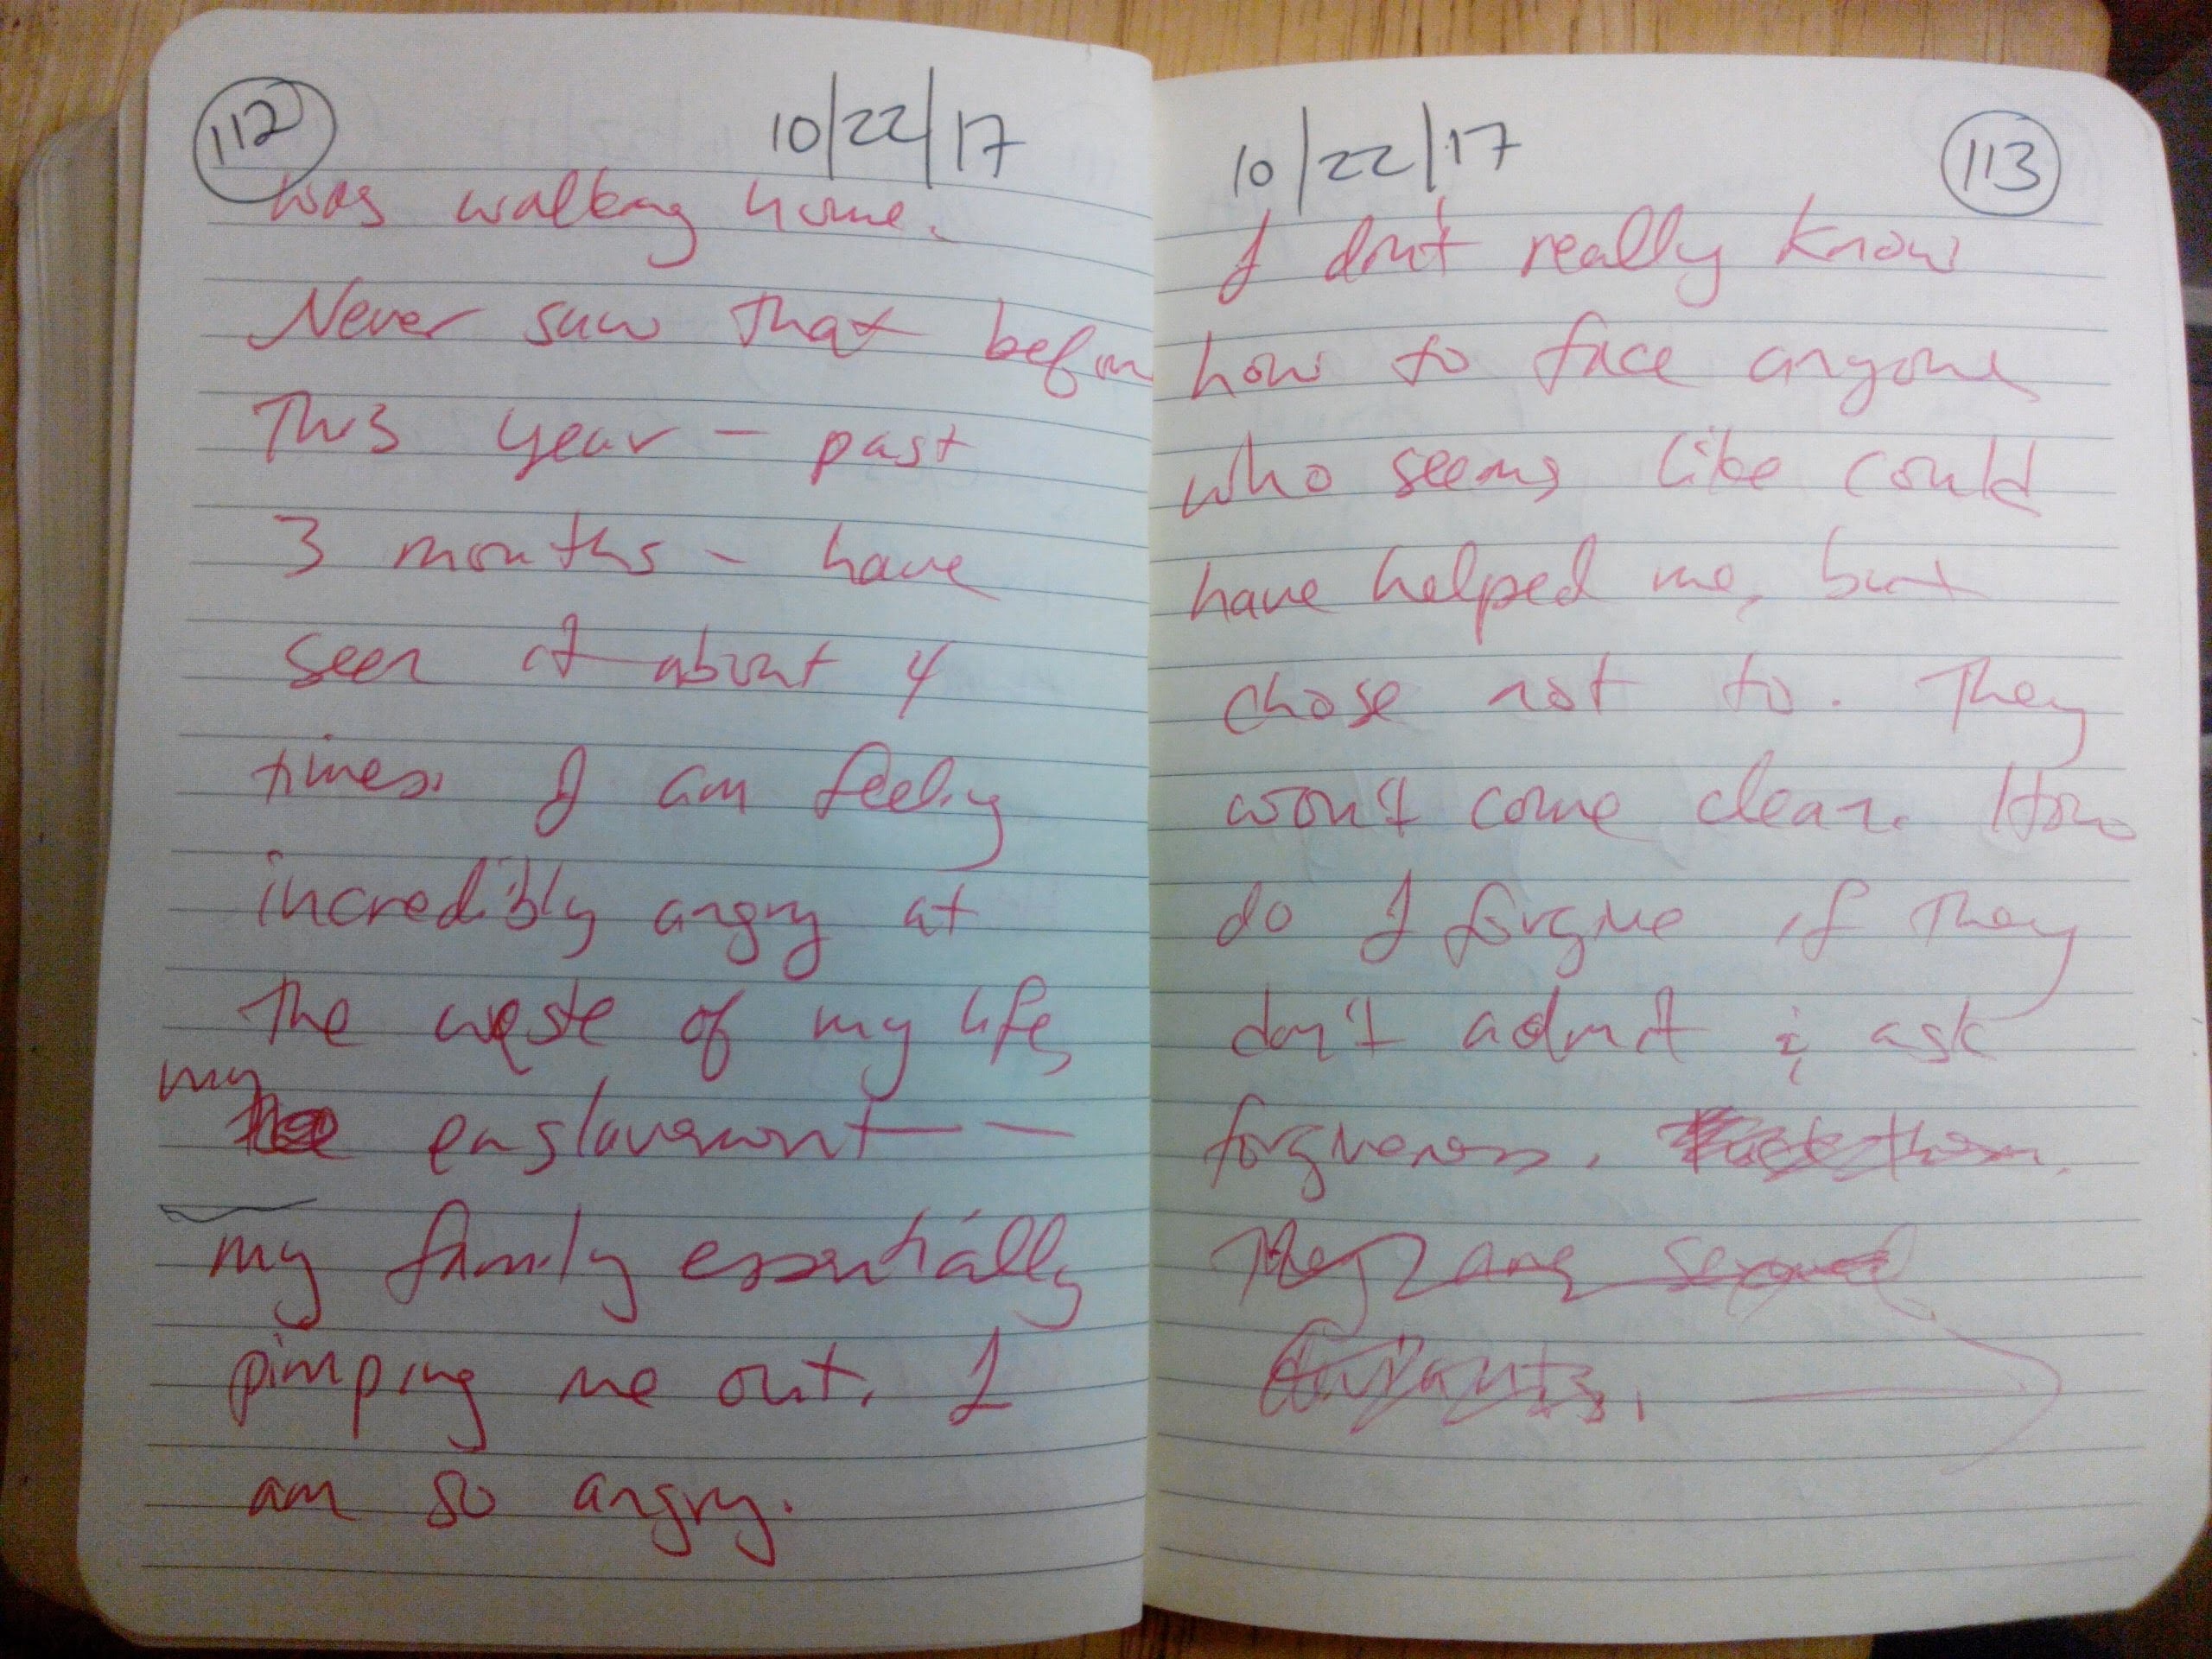 112 10/22/17
was walking home.
Never saw that before
This year - past
3 months - have
seen it about 4
times. I am feeling
incredibly angry at
the waste of my life,
my
the enslavement - -
my family essentially
pimping me out. I
am so angry.
10/22/17 113
I don't really know
how to face anyone
who seems like could
have helped me, but
chose not to. They
won't come clean. How
do I forgive if they
don't admit & ask
forgiveness. them.
They are sexual
deviants.